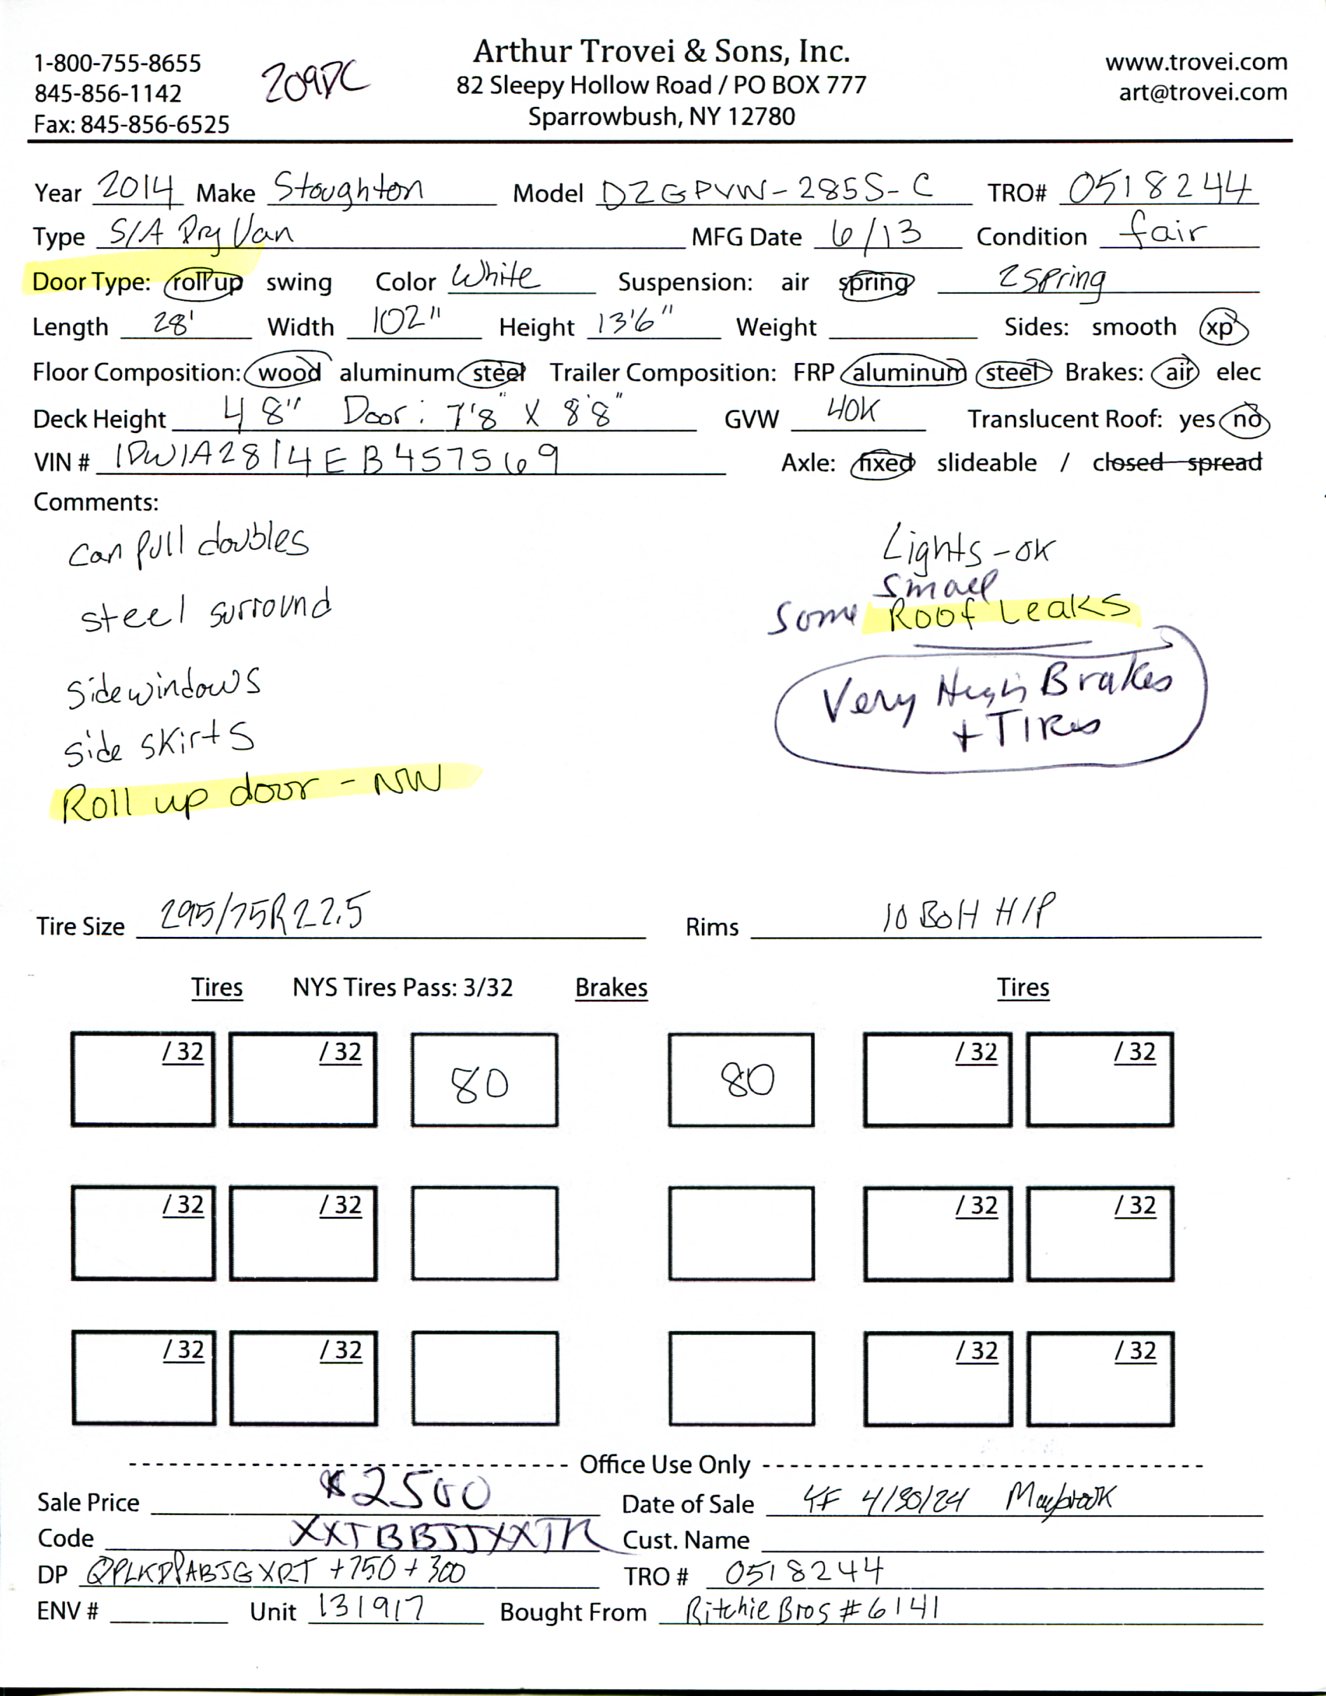 1-800-755-8655
845-856-1142
Fax: 845-856-6525
209DC
Arthur Trovei & Sons, Inc.
82 Sleepy Hollow Road / PO BOX 777
Sparrowbush, NY 12780
www.trovei.com
art@trovei.com
Year 2014 Make Stoughton Model DZGPVW-285S-C TRO# 0518244
Type S/A Dry Van MFG Date 6/13 Condition fair
Door Type: roll up swing Color White Suspension: air spring 2 spring
Length 28' Width 102" Height 13'6" Weight Sides: smooth xp
Floor Composition: wood aluminum steel Trailer Composition: FRP aluminum steel Brakes: air elec
Deck Height 48" Door: 7'8" X 8'8" GVW 40K Translucent Roof: yes no
VIN # 1DW1A2814EB457569 Axle: fixed slideable / closed spread
Comments:
can pull doubles
steel surround
side windows
side skirts
Roll up door - NW
Lights - ok
small
Some Roof Leaks
Very High Brakes
+ TIRes
Tire Size 295/75R22.5 Rims 10 BoH H/P
Tires NYS Tires Pass: 3/32 Brakes Tires
/32 /32 80 80 /32 /32
/32 /32 /32 /32
/32 /32 /32 /32
Office Use Only
Sale Price $2500 Date of Sale YF 4/30/24 Maybrook
Code XXTBBJJXXTR Cust. Name
DP +750+300 TRO # 0518244
ENV # Unit 131917 Bought From Ritchie Bros #6141